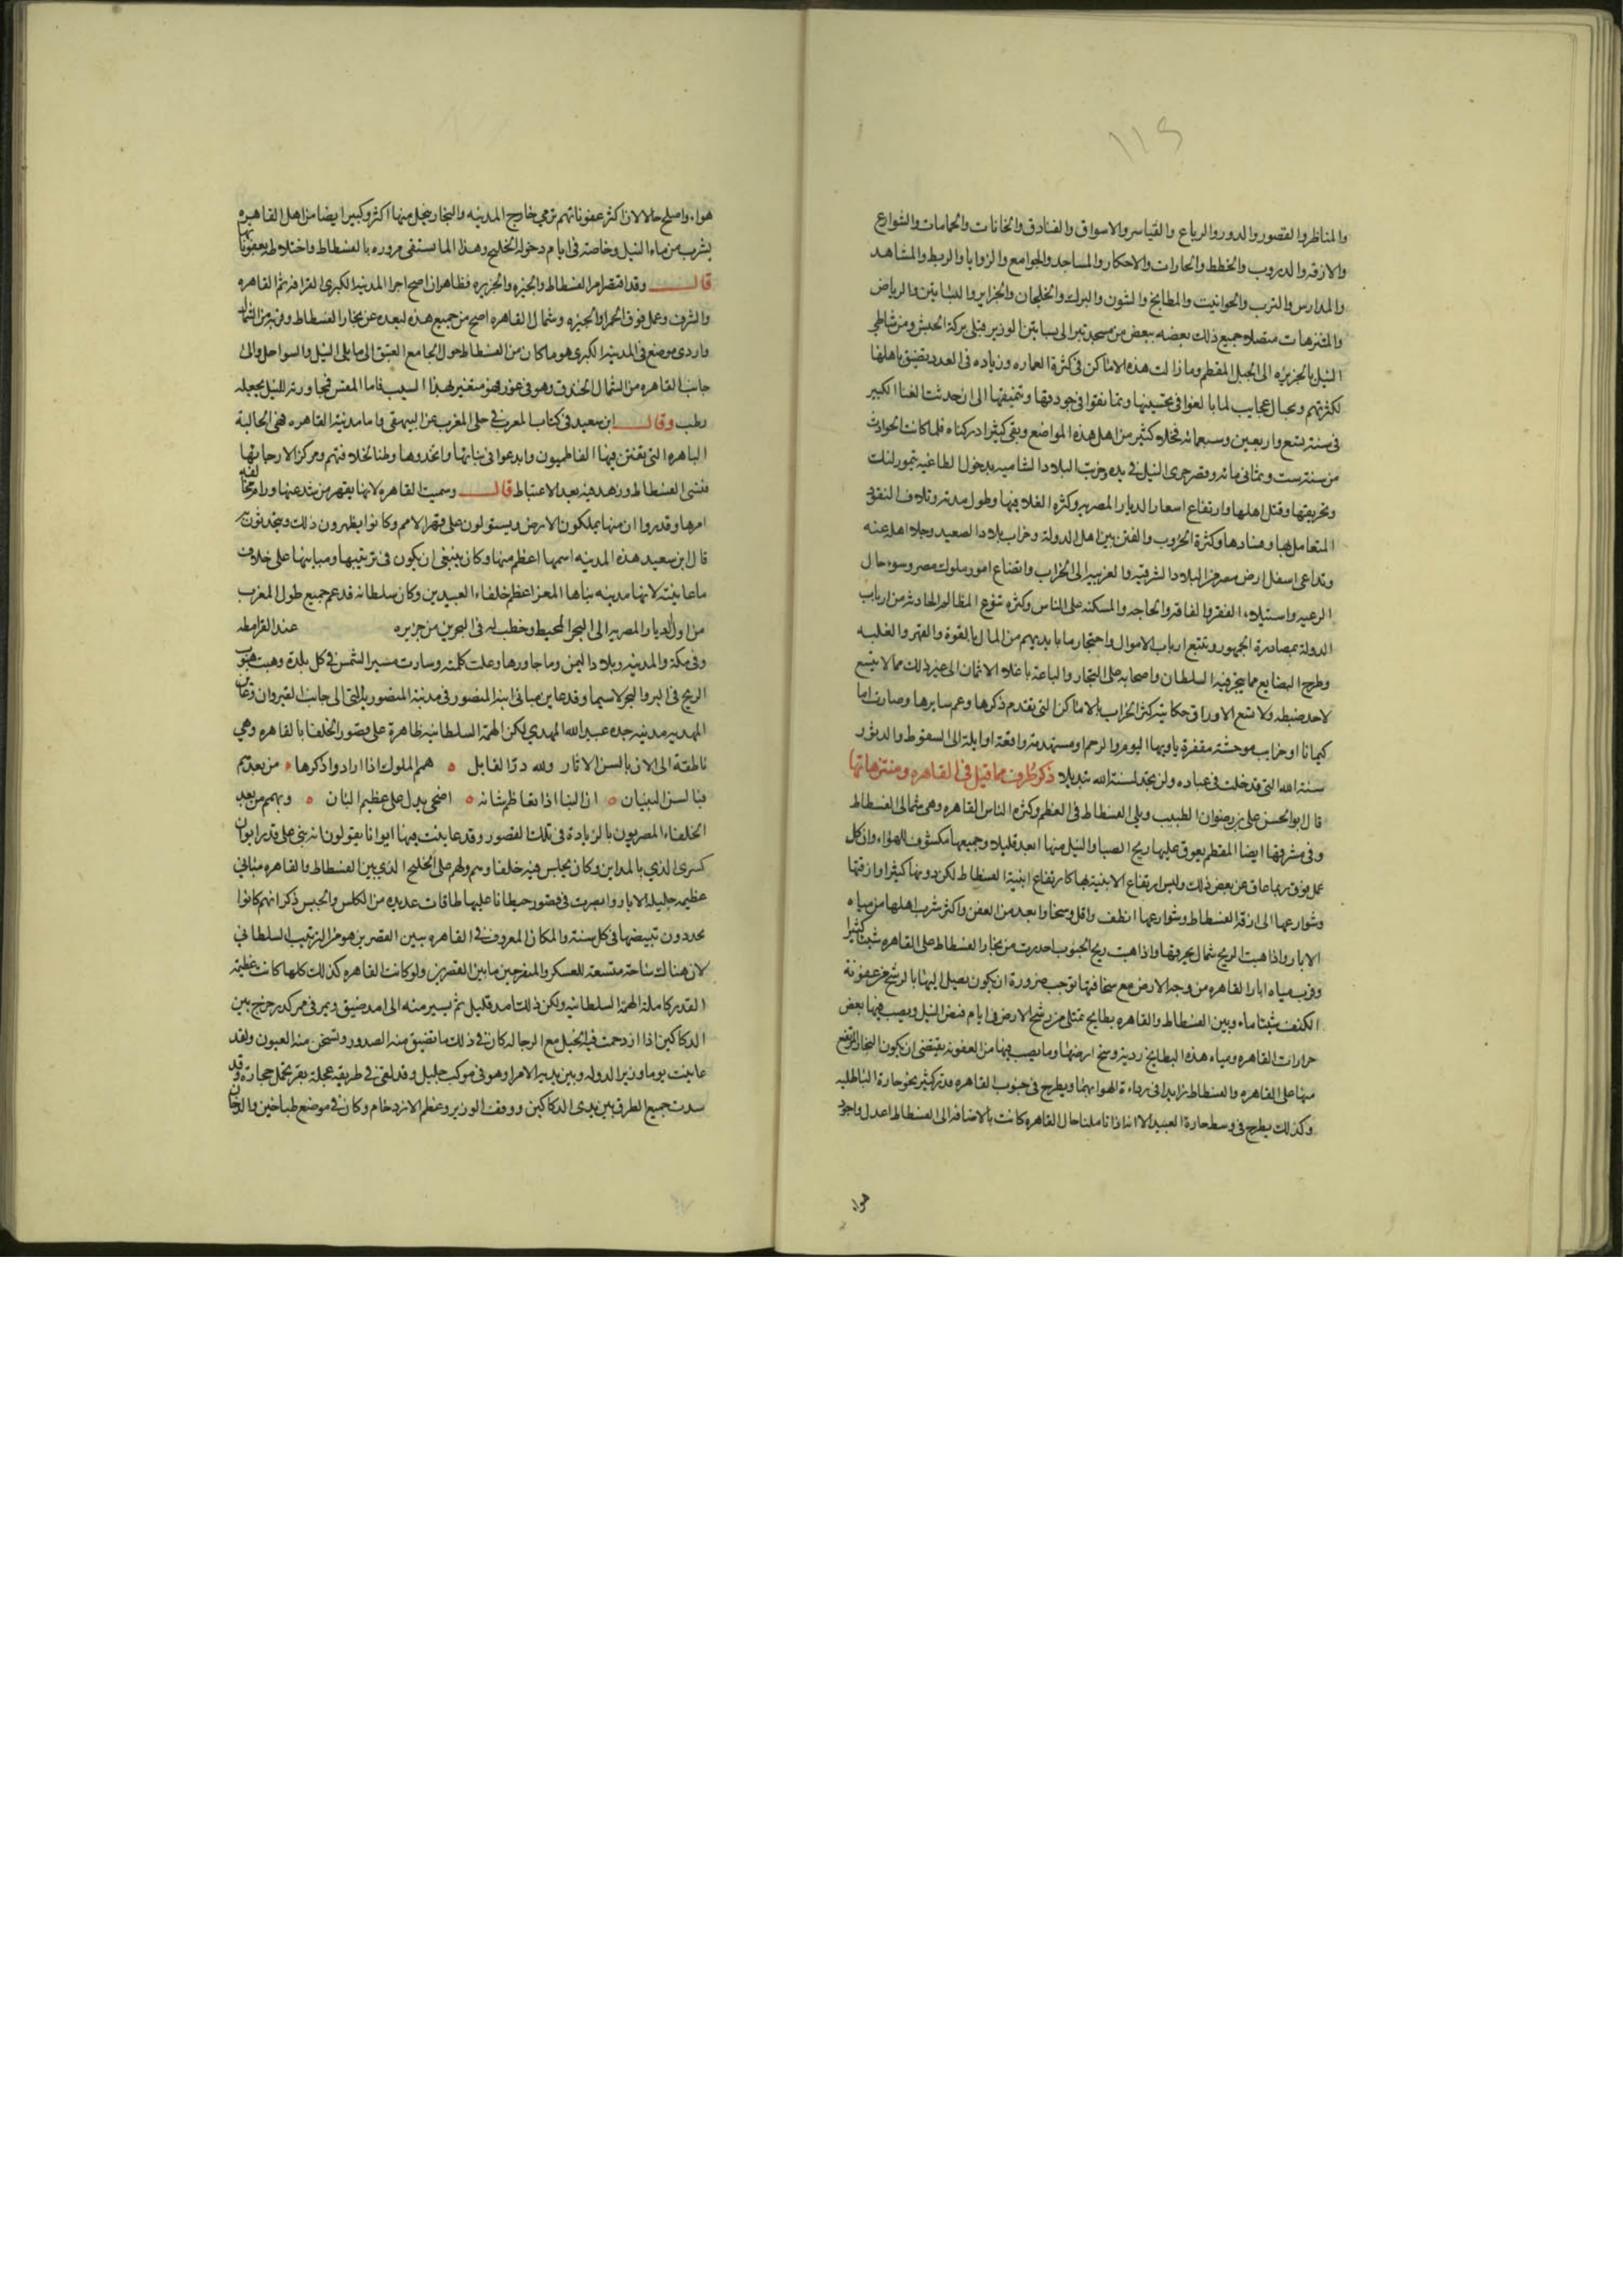 ١١٥
والمناظر والقصور والدور والرباع والقياسر والاسواق والفنادق والخانات والحمامات والشوارع
والازقه والدروب والخطط والحارات والاحكار والمساجد والجوامع والزوايا والربط والمشاهد
والمدارس والترب والحوانيت والمطابخ والشون والبرك والخلجان والجزاير والبساتين والرياض
والمتنزهات متصلا جميع ذلك بعضه ببعض من مسجد تبر الى بساتين الوزير قبلى بركة الحبش ومن شاطى
النيل بالجزيره الى الجبل المقطم وما زالت هذه الاماكن فى كثرة العماره وزياده فى العدد تضيق باهلها
لكثرتهم وتختال عجايب لما بالغوا فى تحسينها وتانقوا فى جودتها وتنميقها الى ان حدث الفنا الكبير
فى سنة تسع واربعين وسبعمائه فخلا كثير من اهل هذه المواضع وبقى كثير ادركناه فلما كانت الحوادث
من سنة ست وثمانى مائه وقصر جرى النيل فى مده وخربت البلاد الشاميه بدخول الطاغيه تيمورلنك
وتحريقها وقتل اهلها وارتفاع اسعار الديار المصريه وكثرة الغلا فيها وطول مدته وتلاف النقود
المتعامل بها وفسادها وكثرة الحروب والفتن بين اهل الدولة وخراب بلاد الصعيد وجلا اهله عنه
وتداعى اسفل ارض مصر من البلاد الشرقيه والغربيه الى الخراب واتضاع امور ملوك مصر وسوء حال
الرعيه واستيلاء الفقر والفاقه والحاجه والمسكنه على الناس وكثره تنوع المظالم الحادثه من ارباب
الدولة بمصادرة الجمهور وتتبع ارباب الاموال واحتجار ما بايديهم من المال بالقوة والقهر والغلبه
وطرح البضايع مما يتجر فيه السلطان واصحابه على التجار والباعة باغلا الاثمان الى غير ذلك مما لا يتسع
لاحد ضبطه ولا تسع الاوراق حكايته كثر الخراب بالاماكن التى تقدم ذكرها وعم سايرها وصارت اما
كيمانا او خرايب موحشة مقفرة ياويها البوم والرخم او مستهدمة واقعة او ايلة الى السقوط والدثور
سنة الله التى قد خلت فى عباده ولن تجد لسنة الله تبديلا ذكر طرف مما قيل فى القاهره ومنتزهاتها
قال ابو الحسن على بن رضوان الطبيب ويلى الفسطاط فى العظم وكثرة الناس القاهره وهى شمالى الفسطاط
وفى شرقها ايضا المقطم يعوق عليها ريح الصبا والنيل منها ابعد قليلا وجميعها مكشوف للهواء وان كل
عمل فوق ربما عاق عن بعض ذلك وليس ارتفاع الابنية بها كارتفاع ابنية الفسطاط لكن دونها كثيرا وازقتها
وشوارعها الى ازقة الفسطاط وشوارعها انظف واقل وسخا وابعد من العفن واكثر شرب اهلها من مياه
الابار واذا هبت الريح شمال يحرقها واذا هبت ريح الجنوب احدرت من بخار الفسطاط على القاهره شيئا كثيرا
وقرب مياه ابار القاهره من وجه الارض مع سخافتها توجب ضرورة ان يكون يصل اليها بالرشح من عفونة
الكنف شيئا ماء وبين الفسطاط والقاهره بطايح تمتلى من رشح الارض فى ايام فيض النيل ويصب فيها بعض
خرارات القاهره ومياه هذه البطايح رديئة وسخ ارضها وما يصب فيها من العفونه يقتضى ان يكون البخار المرتفع
منها على القاهره والفسطاط زايدا فى رداءة الهوا بهما ويطرح فى جنوب القاهره قذر كثير نحو حارة الباطليه
وكذلك يطرح فى وسط حارة العبيد الا انه اذا تاملنا حال القاهره كانت بالاضافه الى الفسطاط اعدل واجود
هواء
هواء واصلح حالا لان اكثر عفوناتهم ترمى خارج المدينه والبخار ينحل منها اكثر وكبير ايضا من اهل القاهره
يشرب من ماء النيل وخاصة فى ايام دخوله الخليج وهذا الماء يستقى مروره بالفسطاط واختلاطه بعفوناتها
قال وقد اقتصر امر الفسطاط والجيزه والجزيره فظاهر ان اصح اجزا المدينة الكبرى القرافه ثم القاهره
والشرف وعمل فوق الحمرا والجيزه وشمال القاهره اصح من جميع هذه لبعده عن بخار الفسطاط وقربه من الشمال
واردى موضع فى المدينة الكبرى هو ما كان من الفسطاط حول الجامع العتيق الى ما يلى النيل والسواحل والى
جانب القاهره من الشمال الخندق وهو فى غور فهو متغير لهذا السبب فاما المقس فمجاورته للنيل يجعله
رطب وقال ابن سعيد فى كتاب المعرب فى حلى المغرب عن البيهقى واما مدينة القاهره فهى الحاليه
الباهره التى تفنن فيها الفاطميون وابدعوا فى بنائها واتخذوها وطنا لخلافتهم ومركزا لارجائها
فنسى الفسطاط وزهد فيه بعد الاغتباط قال وسميت القاهره لانها تقهر من شذ عنها ورام مخالفة
امرها وقدروا ان منها يملكون الارض ويستولون على قهر الامم وكانوا يظهرون ذلك ويتحدثون به
قال ابن سعيد هذه المدينه اسمها اعظم منها وكان ينبغى ان يكون فى ترتيبها ومبانيها على خلاف
ما عاينته لانها مدينه بناها المعز اعظم خلفاء العبيديين وكان سلطانه قد عم جميع طول المغرب
من اول الديار المصريه الى البحر المحيط وخطب له فى البحرين من جزيره عند القرامطه
وفى مكة والمدينه وبلاد اليمن وما جاورها وعلت كلمته وسارت مسير الشمس فى كل بلدة وهبت هبوب
الريح فى البر والبحر لاسيما وقد عاين مبانى ابيه المنصور فى مدينة المنصوريه التى الى جانب القيروان وعاين
المهديه مدينة جده عبيد الله المهدي لكن الهمة السلطانيه ظاهرة على قصور الخلفا بالقاهره وهي
ناطقة الى الان بالسن الاثار ولله در القايل ه همم الملوك اذا ارادوا ذكرها ه من بعدهم
فبالسن البنيان ه ان البنا اذا تعاظم شانه ه اضحى يدل على عظيم الشان ه وتهمم من بعد
الخلفاء المصريون بالزيادة فى تلك القصور وقد عاينت فيها ايوانا يقولون انه بنى على قدر ايوان
كسرى الذي بالمداين وكان يجلس فيه خلفاوهم ولهم على الخليج الذي بين الفسطاط والقاهره مباني
عظيمه جليلة الاثار وابصرت فى قصور حيطانا عليها طاقات عديده من الكلس والجبس ذكر انهم كانوا
يجددون تبييضها فى كل سنة والمكان المعروف فى القاهره ببين القصرين هو من الترتيب السلطاني
لان هناك ساحة متسعة للعسكر والمتفرجين ما بين القصرين ولو كانت القاهره كذلك كلها كانت عظيمة
القدر كاملة الهمة السلطانيه ولكن ذلك امد قليل ثم يسير منه الى امد ضيق ويمر فى ممر كدر حرج بين
الدكاكين اذا ازدحمت فيه الخيل مع الرجاله كان فى ذلك ما تضيق منه الصدور وتسخن منه العيون ولقد
عاينت يوما وزير الدوله وبين يديه الامرا وهو فى موكب جليل وقد لقى فى طريقه عجلة بقر تحمل حجارة وقد
سدت جميع الطرق بين يدى الدكاكين ووقف الوزير وعظم الازدحام وكان فى موضع طباخين والدخان